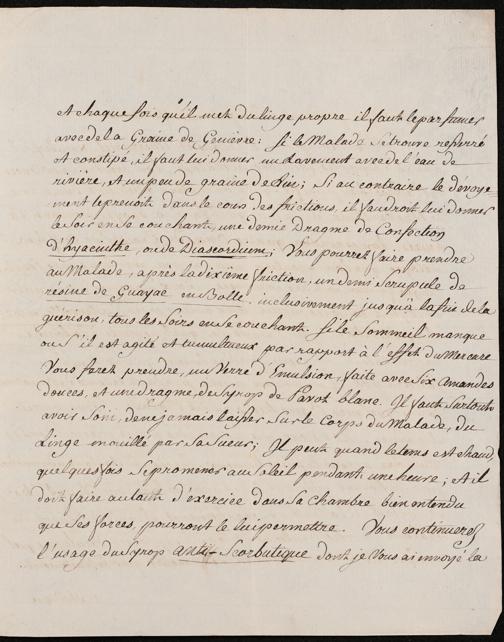 et chaque fois qu'il met du linge propre il faut le parfumer
avec de la Graine de Genievre: si le Malade se trouve resserré
et constipé, il faut lui donner un Lavement avec de l'eau de
riviére, et un peu de graine de Lin; Si au contraire le devoye
ment le prenoit dans le cours des frictions, il faudroit lui donner
le Soir en se couchant, une demie Dragme de Confection
d'hyacinthe, ou de Diascordium; Vous pourrez faire prendre
au Malade, après la dixiéme friction, un demi Scrupule de
résine de Guayac en Bolle, inclusivement jusqu'à la fin de la
guérison, tous les Soirs en se couchant. Si le Sommeil manque
ou S'il est agité et tumultueux par rapport à l'effet du Mercure
Vous feret prendre, un Verre d'Emulsion, faite avec Six Amandes
douces, et un dragme, de Syrop de Pavot blanc. Il faut Surtout
avoir Soin, de ne jamais laisser Sur le Corps du Malade, du
Linge mouillé par Sa Sueur; Il peut quand le tems est chaud
quelques fois Se promener au Soleil pendant une heure; et il
doit faire autant d'exercice dans Sa Chambre bien entendu
que Ses forces, pourront le lui permettre. Vous continuerez
l'usage du Syrop Anti-Scorbutique dont je Vous ai envoyé la